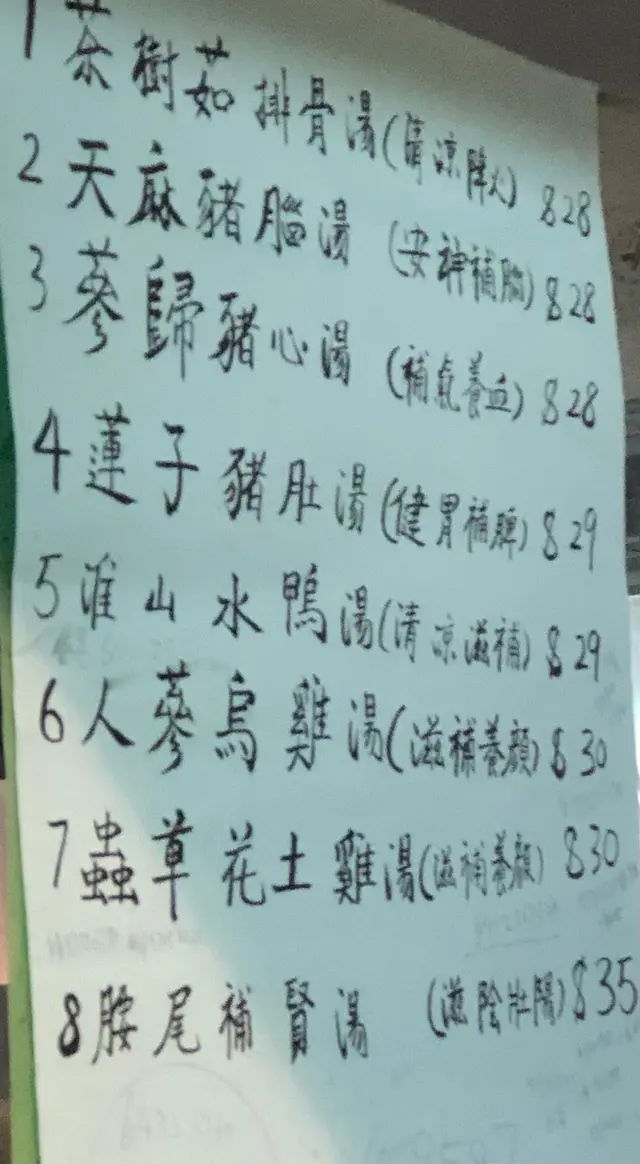 1 茶樹茹 排骨湯(清涼降火) $28
2 天麻豬腦湯 (安神補腦) $28
3 蔘歸豬心湯 (補氣養血) $28
4 蓮子豬肚湯(健胃補脾) $29
5 淮山水鴨湯(清凉滋補) $29
6 人蔘烏雞湯(滋補養顏) $30
7 蟲草花土雞湯(滋補養顏) $30
8 胺尾補賢湯 (滋陰壯陽) $35